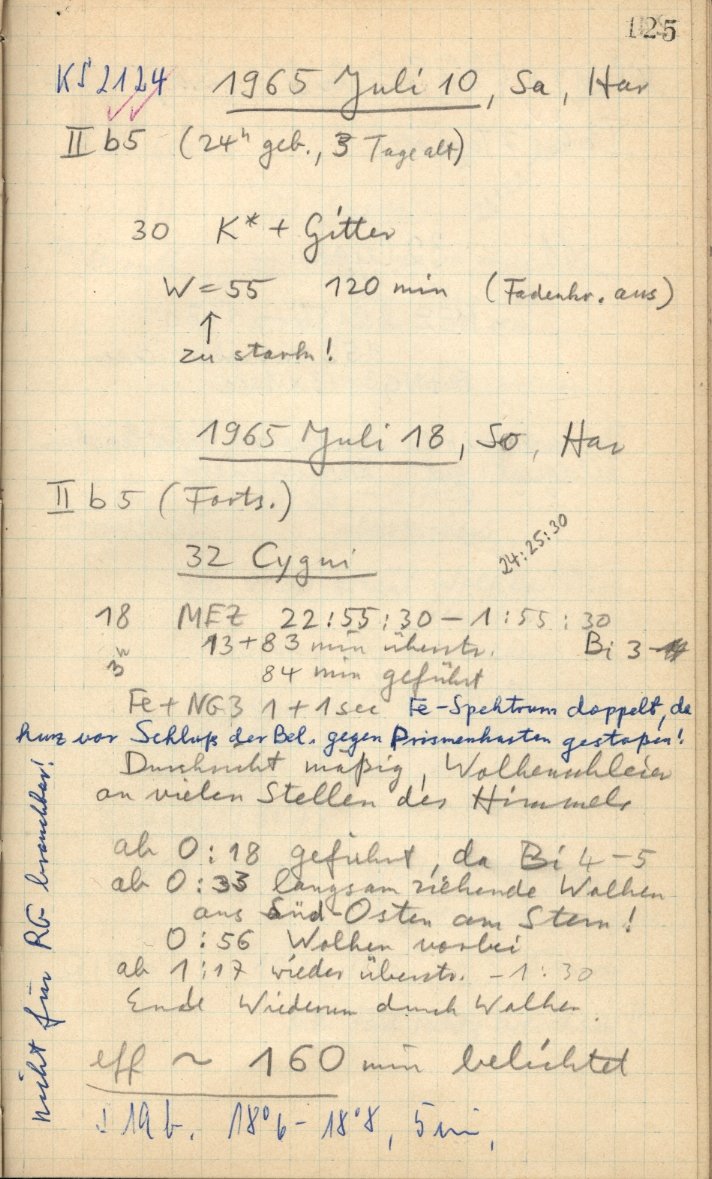 125
KS 2124 1965 Juli 10, Sa, Har
II b5 (24h geb., 3 Tage alt)
30 K* + Gitter
W = 55 120 min (Fadenkr. aus)
↑
zu stark!
1965 Juli 18, So, Har
II b 5 (Forts.)
32 Cygni
24:25:30
18 MEZ 22:55:30 – 1:55:30
13 + 83 min überstr. Bi 3
3h
84 min geführt
Fe + NG3 1 + 1 sec Fe-Spektrum doppelt, da
kurz vor Schluß der Bel. gegen Prismenkasten gestoßen!
Durchsicht mäßig, Wolkenschleier
an vielen Stellen des Himmels
ab 0:18 geführt, da Bi 4–5
ab 0:33 langsam ziehende Wolken
aus Süd-Osten am Stern!
0:56 Wolken vorbei
ab 1:17 wieder überstr. – 1:30
Ende Wiederum durch Wolken.
eff ~ 160 min belichtet
19 b. 18°6 – 18°8, 5 min,
nicht für RG brauchbar!